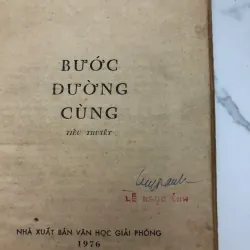 BƯỚC
ĐƯỜNG
CÙNG
TIỂU THUYẾT
LÊ NGỌC ÁNH
NHÀ XUẤT BẢN VĂN HỌC GIẢI PHÓNG
1976